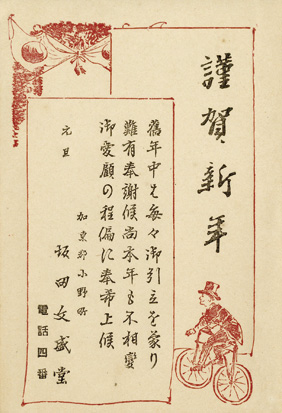 謹賀新年
舊年中は毎々御引立を蒙り
難有奉謝候尚本年も不相變
御愛顧の程偏に奉希上候
元旦
加東郡小野町
坂田文盛堂
電話四番